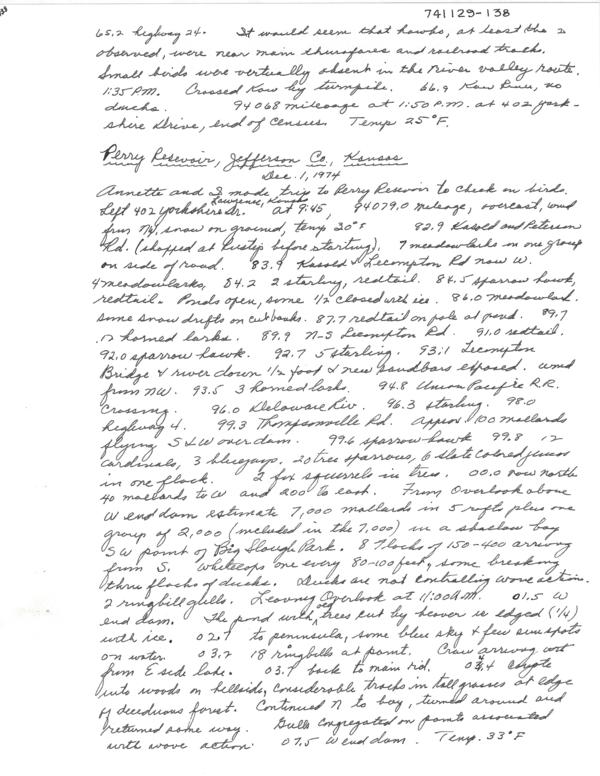 741129-138
65.2 highway 24. It would seem that hawks, at least the 2
observed, were near main thurofares and railroad tracks.
Small birds were vertually absent in the river valley route.
1:35 P.M. Crossed Kaw by turnpike. 66.9 Kaw River, no
ducks. 94068 mileage at 1:50 P.M. at 402 York-
shire Drive, end of census. Temp 25°F.
Perry Resevoir, Jefferson Co., Kansas
Dec. 1, 1974
Annette and I made trip to Perry Resevoir to check on birds.
Left 402 Yorkshire Dr. Lawrence, Kansas at 9:45, 94079.0 mileage, overcast, wind
from NW, snow on ground, temp 20°F 82.9 Kasold and Peterson
Rd. (stopped at before starting). 7 meadowlarks in one group
on side of road. 83.9 Kasold & Lecompton Rd now W.
4 meadowlarks, 84.2 2 starling, redtail. 84.5 sparrow hawk,
redtail. Ponds open, some 1/2 closed with ice. 86.0 meadowlark.
some snow drifts on cutbanks. 87.7 redtail on pole at pond. 89.7
12 horned larks. 89.9 N-S Lecompton Rd. 91.0 redtail.
92.0 sparrow hawk. 92.7 5 starling. 93.1 Lecompton
Bridge & river down 1/2 foot & new sandbars exposed. wind
from NW. 93.5 3 horned lark. 94.8 Union Pacific R.R.
Crossing. 96.0 Delaware Riv. 96.3 starling. 98.0
highway 4. 99.3 Thompsonville Rd. Approx 100 mallards
flying S & W over dam. 99.6 sparrow hawk 99.8 12
cardinals, 3 bluejays, 20 tree sparrows, 6 slate colored juncos
in one flock. 2 fox squirrels in tree. 00.0 now north
40 mallards to W and 200 to east. From Overlook above
W end dam estimate 7,000 mallards in 5 rafts plus one
group of 2,000 (included in the 7,000) in a shallow bay
SW point of Big Slough Park. 8 flocks of 150-400 arriving
from S. Whitecaps one every 80-100 feet, some breaking
thru flocks of ducks. Ducks are not controlling wave action.
2 ringbill gulls. Leaving Overlook at 11:00 A.M. 01.5 W
end dam. The pond with old trees cut by beaver is edged (1/4)
with ice. 02.7 to peninsula, some blue sky & few sun spots
on water. 03.2 18 ringbills at point. Crow arriving
from E side lake. 03.7 back to main rd. 03.4 Coyote
into woods on hillside, considerable tracks in tall grasses at edge
of deciduous forest. Continued N to bay, turned around and
returned same way. Gulls congregated on points associated
with wave action. 07.5 W end dam. Temp. 33°F